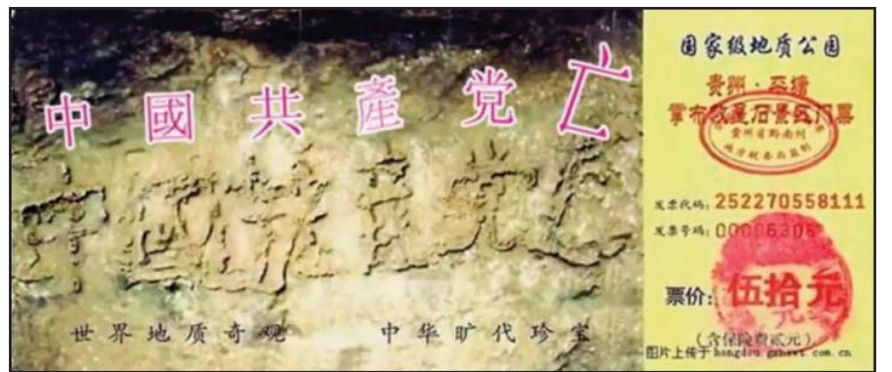 中國共產党亡
中国共产党亡
世界地质奇观 中华旷代珍宝
国家级地质公园
贵州·平塘
掌布 景区门票
贵州省黔南州
地方税务局监制
发票代码：252270558111
发票号码：00006306
票价：伍拾元
（含保险费贰元）
图片上传于 hongdou.gxnews.com.cn